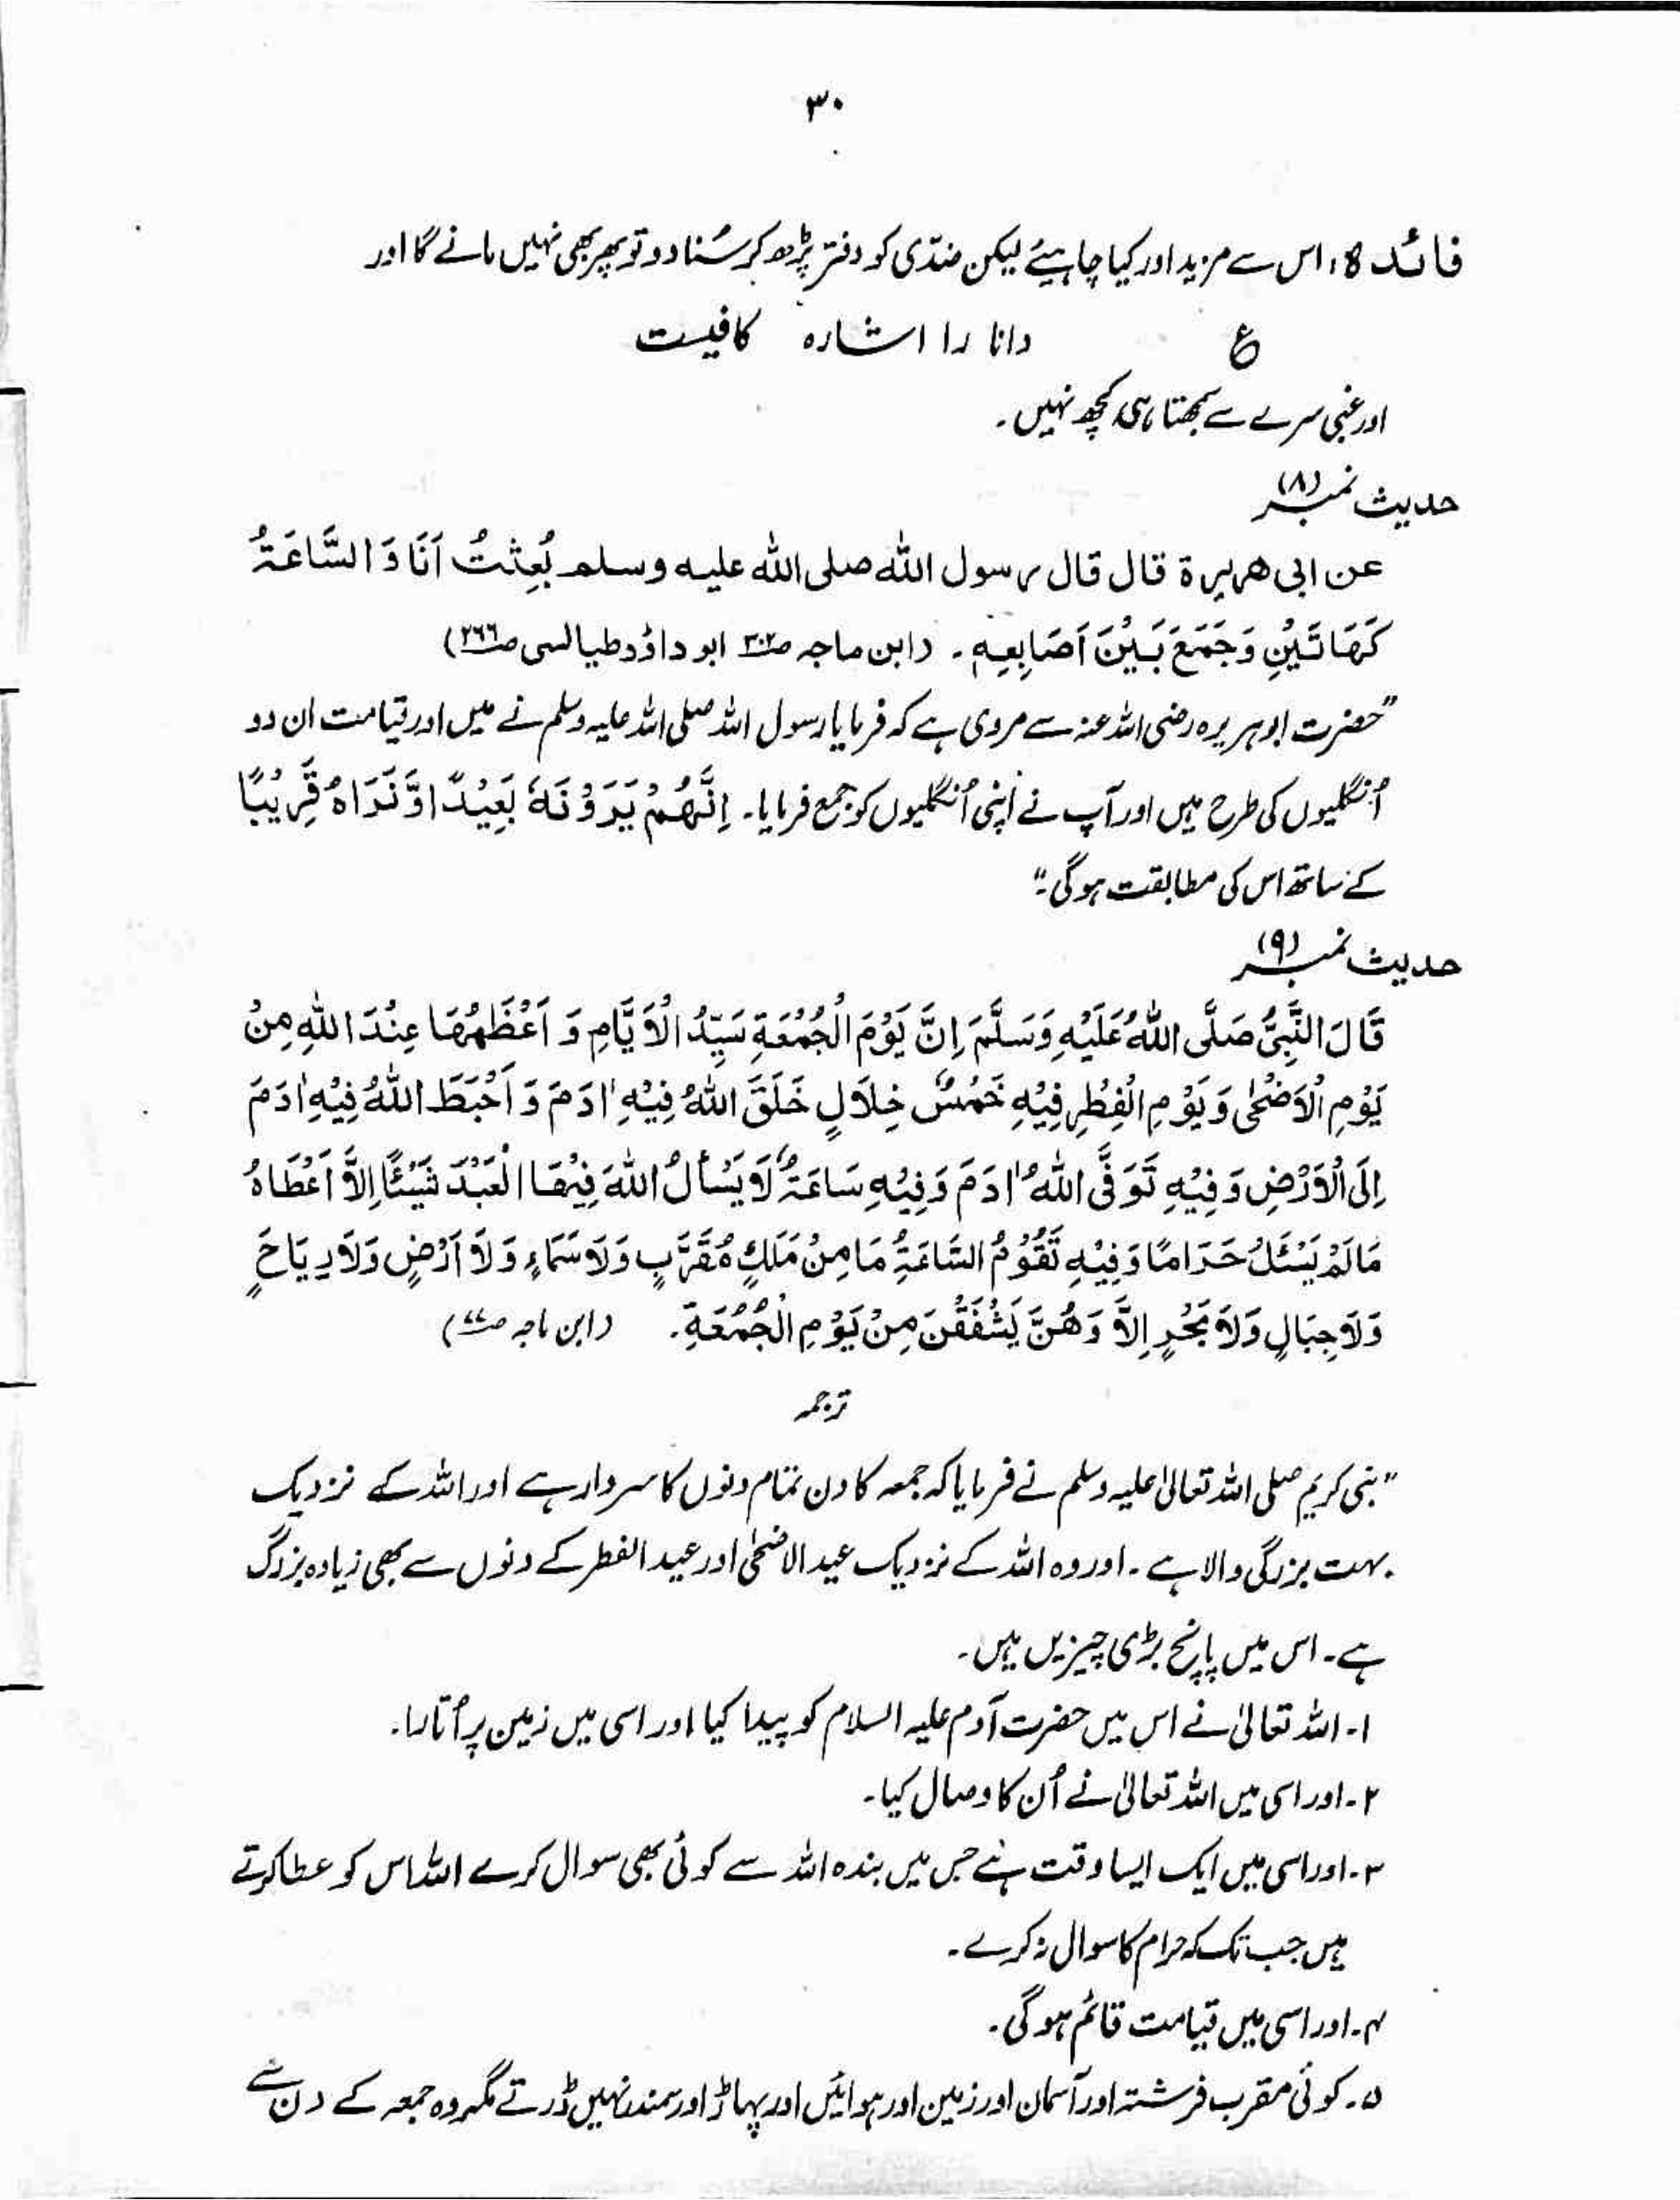 ۳۰
فائدہ: اس سے مزید اور کیا چاہیئے لیکن ضدّی کو دفتر پڑھ کر سُنا دو تو پھر بھی نہیں مانے گا اور
ع دانا را اشارہ کافیست
اور غبی سرے سے سمجھتا ہی کچھ نہیں۔
حدیث نمبر (۸)
عن ابی ھریرۃ قال قال رسول اللہ صلی اللہ علیہ وسلم بُعِثْتُ اَنَا وَ السَّاعَۃُ
کَھَاتَیْنِ وَجَمَعَ بَیْنَ اَصَابِعِہٖ۔ (ابن ماجہ ص۳۰۲ ابو داؤد طیالسی ص۲۶۶)
”حضرت ابوہریرہ رضی اللہ عنہ سے مروی ہے کہ فرمایا رسول اللہ صلی اللہ علیہ وسلم نے میں اور قیامت ان دو
اُنگلیوں کی طرح ہیں اور آپ نے اپنی اُنگلیوں کو جمع فرمایا۔ اِنَّھُمْ یَرَوْنَہٗ بَعِیْدًا وَّنَرَاہُ قَرِیْبًا
کے ساتھ اس کی مطابقت ہو گی۔“
حدیث نمبر (۹)
قَالَ النَّبِیُّ صَلَّی اللہُ عَلَیْہِ وَسَلَّمَ اِنَّ یَوْمَ الْجُمُعَۃِ سَیِّدُ الْاَیَّامِ وَ اَعْظَمُھَا عِنْدَ اللہِ مِنْ
یَوْمِ الْاَضْحٰی وَ یَوْمِ الْفِطْرِ فِیْہِ خَمْسٌ خِلَالٍ خَلَقَ اللہُ فِیْہِ اٰدَمَ وَ اَحْبَطَ اللہُ فِیْہِ اٰدَمَ
اِلَی الْاَرْضِ وَ فِیْہِ تَوَفَّی اللہُ اٰدَمَ وَ فِیْہِ سَاعَۃٌ لَا یَسْأَلُ اللہَ فِیْھَا الْعَبْدَ شَیْئًا اِلَّا اَعْطَاہُ
مَا لَمْ یَسْئَلْ حَرَامًا وَ فِیْہِ تَقُوْمُ السَّاعَۃُ مَا مِنْ مَلَکٍ مُقَرَّبٍ وَلَا سَمَاءٍ وَلَا اَرْضٍ وَلَا رِیَاحٍ
وَلَا جِبَالٍ وَلَا بَحْرٍ اِلَّا وَھُنَّ یَشْفَقْنَ مِنْ یَوْمِ الْجُمُعَۃِ۔ (ابن ماجہ ص۷۷)
ترجمہ
”نبی کریم صلی اللہ تعالیٰ علیہ وسلم نے فرمایا کہ جمعہ کا دن تمام دنوں کا سردار ہے اور اللہ کے نزدیک
بہت بزرگی والا ہے۔ اور وہ اللہ کے نزدیک عید الاضحیٰ اور عید الفطر کے دنوں سے بھی زیادہ بزرگ
ہے۔ اس میں پانچ بڑی چیزیں ہیں۔
۱۔ اللہ تعالیٰ نے اس میں حضرت آدم علیہ السلام کو پیدا کیا اور اسی میں زمین پر اُتارا۔
۲۔ اور اسی میں اللہ تعالیٰ نے اُن کا وصال کیا۔
۳۔ اور اسی میں ایک ایسا وقت ہے جس میں بندہ اللہ سے کوئی بھی سوال کرے اللہ اس کو عطا کرتے
ہیں جب تک کہ حرام کا سوال نہ کرے۔
۴۔ اور اسی میں قیامت قائم ہو گی۔
۵۔ کوئی مقرب فرشتہ اور آسمان اور زمین اور ہوائیں اور پہاڑ اور سمندر نہیں ڈرتے مگر وہ جمعہ کے دن سے